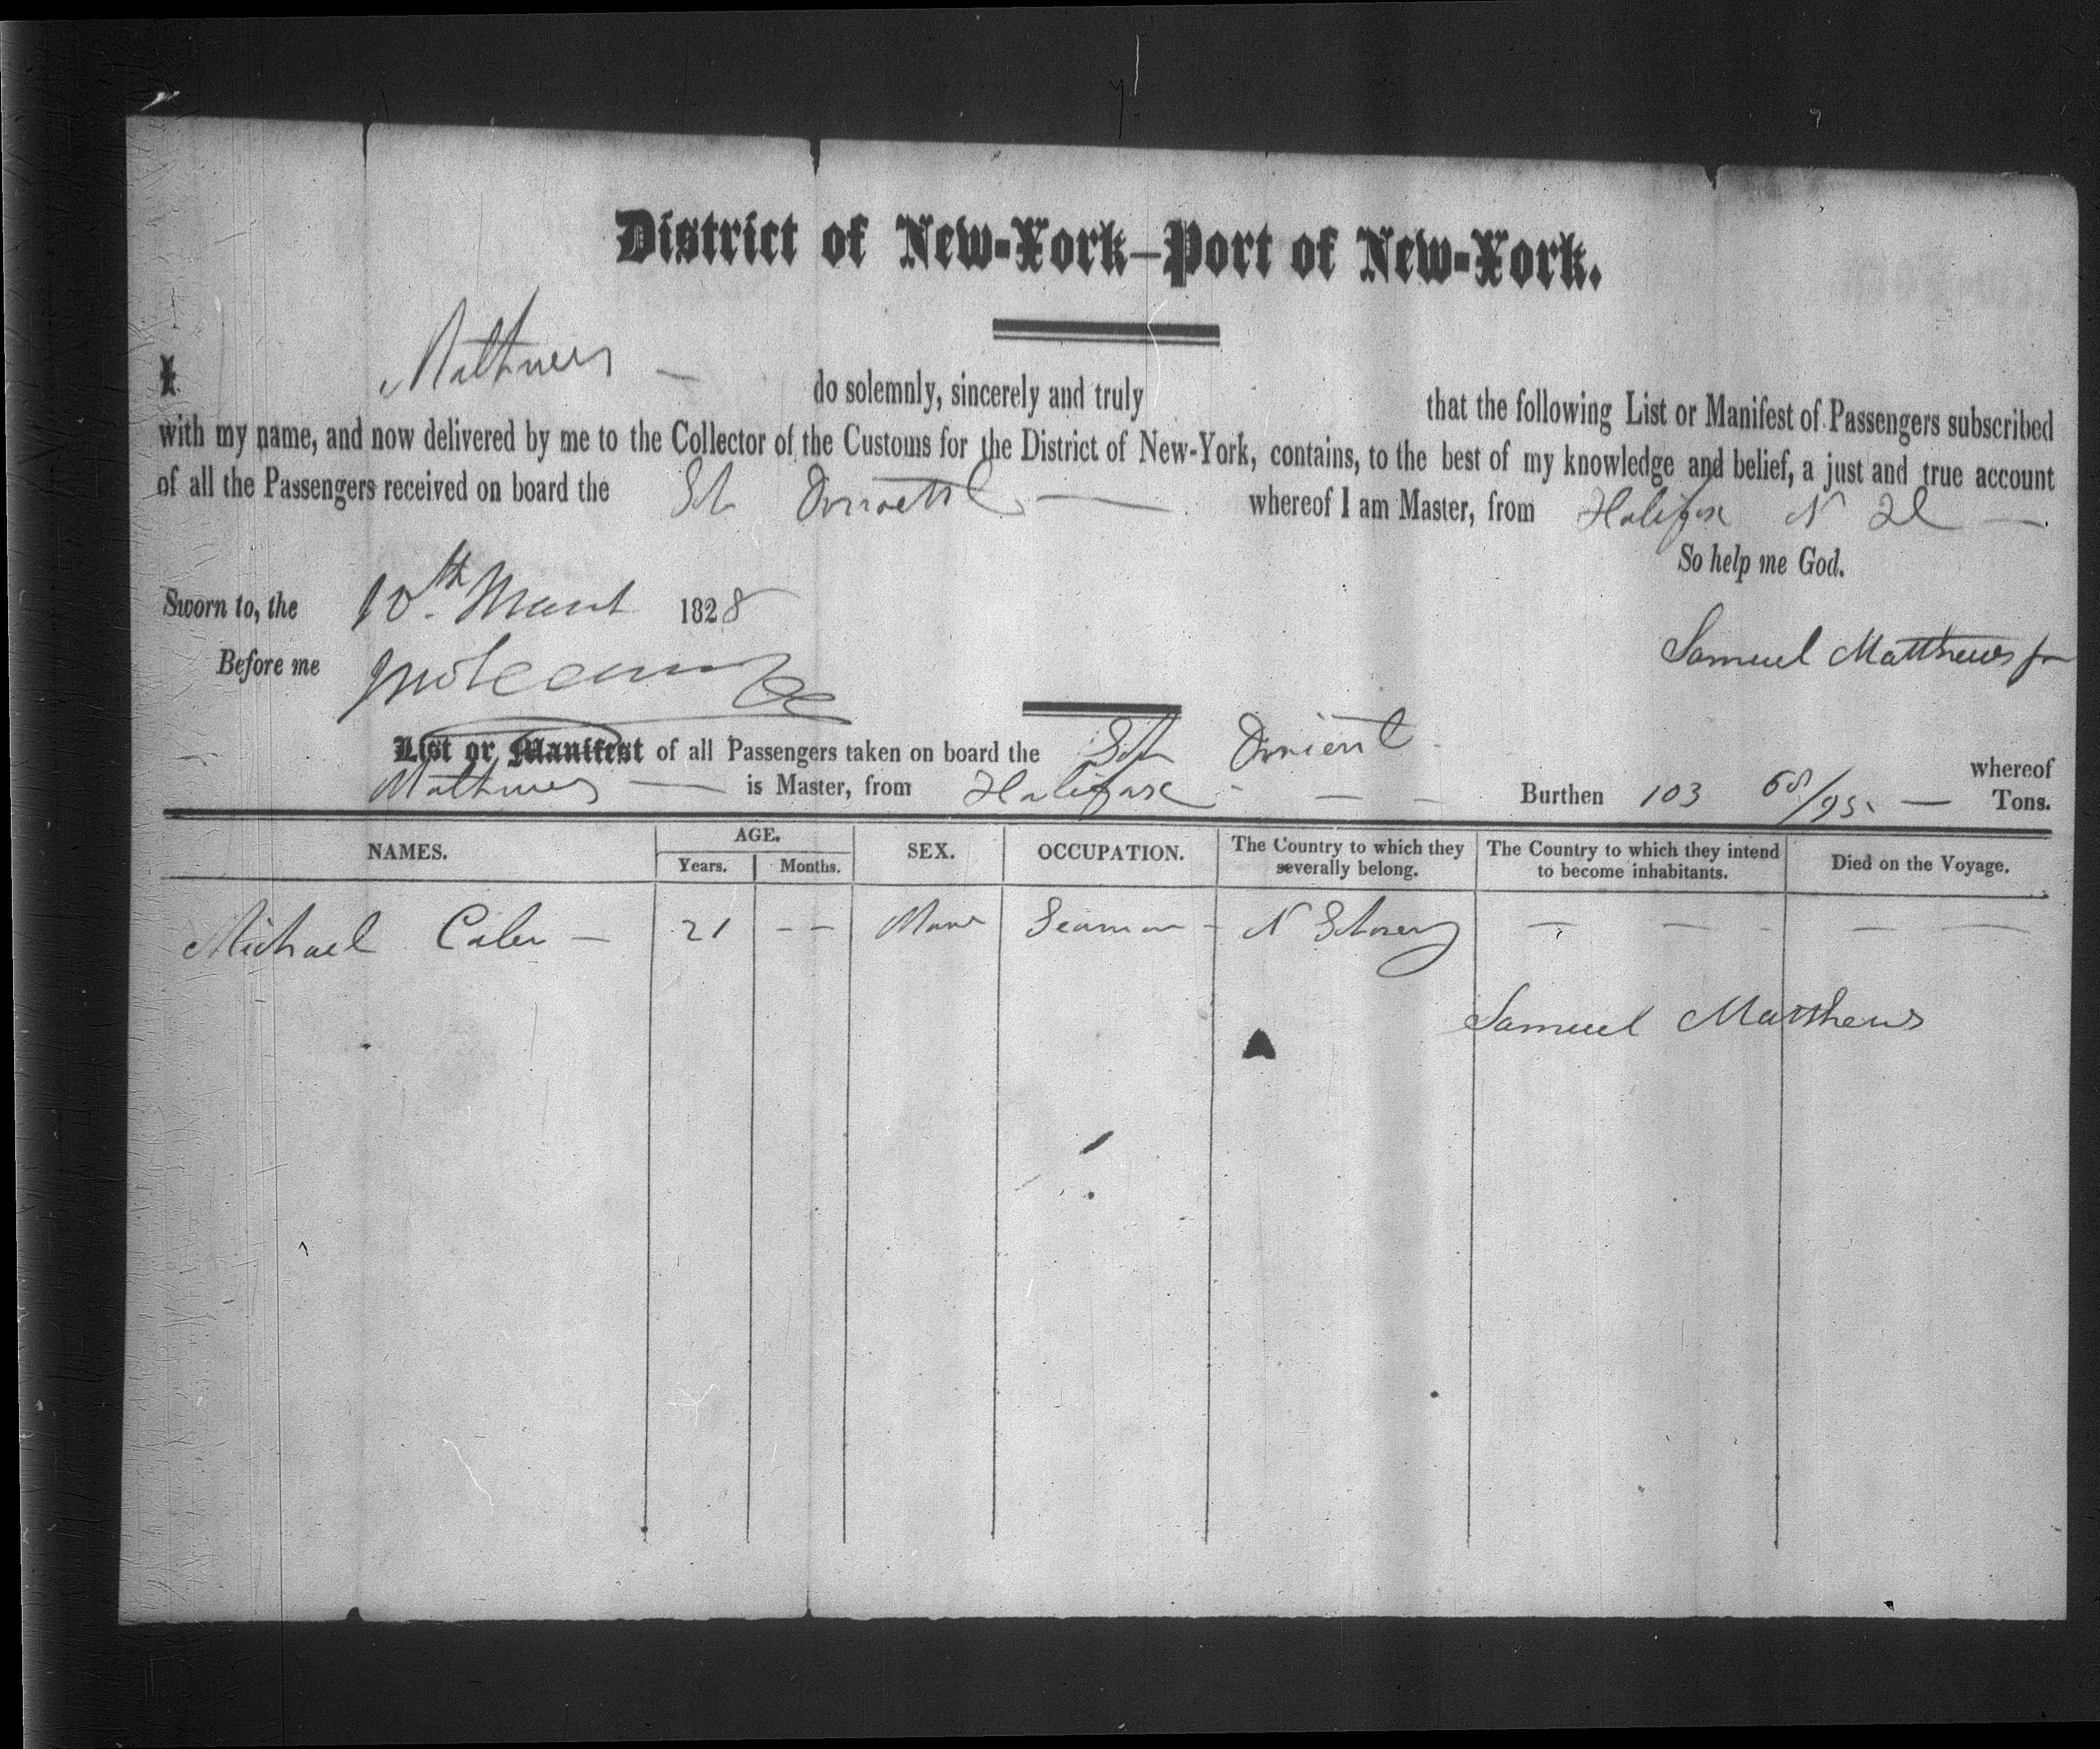 District of New-York—Port of New-York.
I Mathews — do solemnly, sincerely and truly that the following List or Manifest of Passengers subscribed
with my name, and now delivered by me to the Collector of the Customs for the District of New-York, contains, to the best of my knowledge and belief, a just and true account
of all the Passengers received on board the whereof I am Master, from Halifax N —
So help me God.
Sworn to, the 10th March 1828
Samuel Matthews jr
Before me
List or Manifest of all Passengers taken on board the Sch whereof
Mathews — is Master, from Halifax - — — Burthen 103 68/95 — Tons.
NAMES. AGE. Years. Months. SEX. OCCUPATION. The Country to which they severally belong. The Country to which they intend to become inhabitants. Died on the Voyage.
Michael — 21 -- Man Seaman - N — — - — —
Samuel Matthews